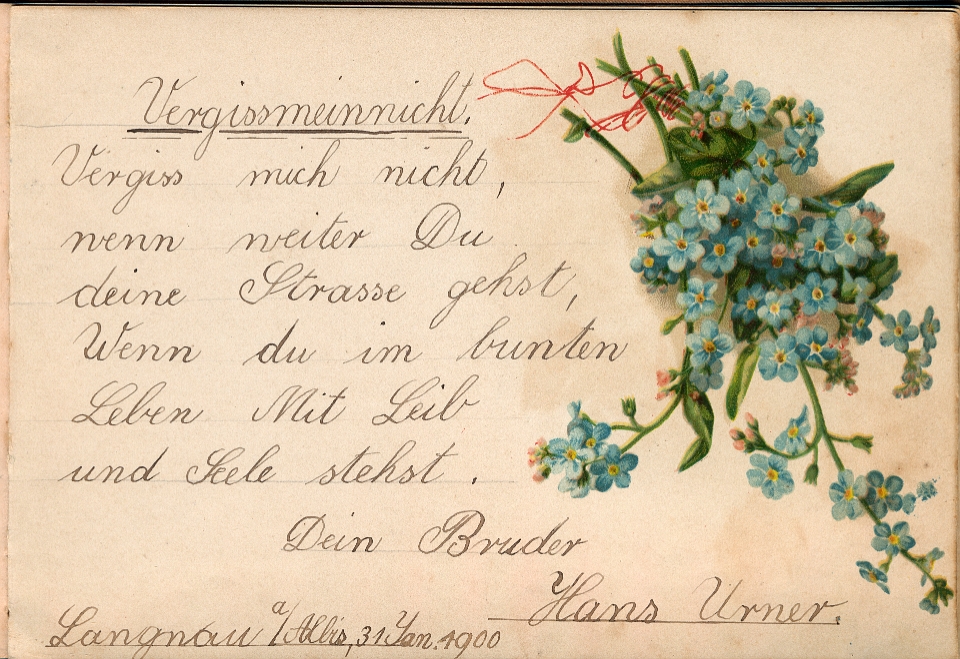 Vergissmeinnicht.
Vergiss mich nicht,
wenn weiter Du
deine Strasse gehst,
Wenn du im bunten
Leben Mit Leib
und Seele stehst.
Dein Bruder
Hans Urner.
Langnau a/Albis, 31 Jan. 1900